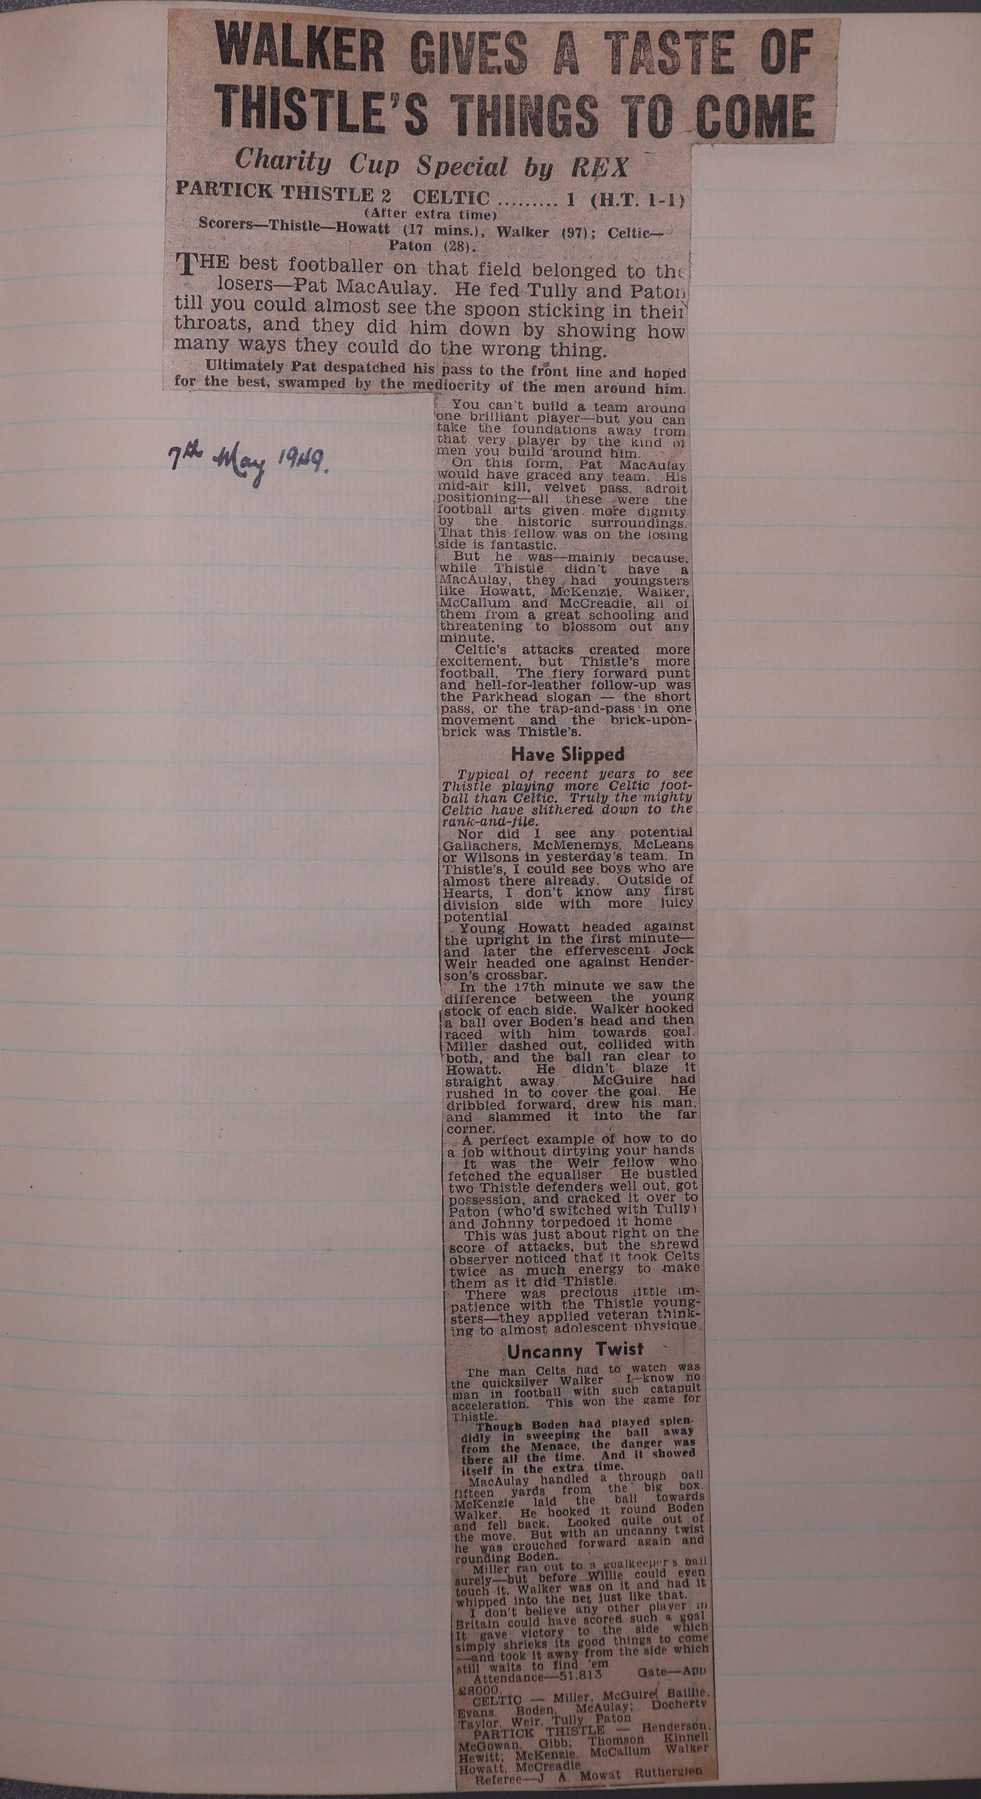 WALKER GIVES A TASTE OF
THISTLE'S THINGS TO COME
Charity Cup Special by REX
PARTICK THISTLE 2 CELTIC ......... 1 (H.T. 1-1)
(After extra time)
Scorers—Thistle—Howatt (17 mins.), Walker (97); Celtic—
Paton (28).
THE best footballer on that field belonged to the
losers—Pat MacAulay. He fed Tully and Paton
till you could almost see the spoon sticking in their
throats, and they did him down by showing how
many ways they could do the wrong thing.
Ultimately Pat despatched his pass to the front line and hoped
for the best, swamped by the mediocrity of the men around him.
7th May 1949.
You can't build a team around
one brilliant player—but you can
take the foundations away from
that very player by the kind of
men you build around him.
On this form, Pat MacAulay
would have graced any team. His
mid-air kill, velvet pass, adroit
positioning—all these were the
football arts given more dignity
by the historic surroundings.
That this fellow was on the losing
side is fantastic.
But he was—mainly because,
while Thistle didn't have a
MacAulay, they had youngsters
like Howatt, McKenzie, Walker,
McCallum and McCreadie, all of
them from a great schooling and
threatening to blossom out any
minute.
Celtic's attacks created more
excitement, but Thistle's more
football. The fiery forward punt
and hell-for-leather follow-up was
the Parkhead slogan — the short
pass, or the trap-and-pass in one
movement and the brick-upon-
brick was Thistle's.
Have Slipped
Typical of recent years to see
Thistle playing more Celtic foot-
ball than Celtic. Truly the mighty
Celtic have slithered down to the
rank-and-file.
Nor did I see any potential
Gallachers, McMenemys, McLeans
or Wilsons in yesterday's team. In
Thistle's, I could see boys who are
almost there already. Outside of
Hearts, I don't know any first
division side with more juicy
potential
Young Howatt headed against
the upright in the first minute—
and later the effervescent Jock
Weir headed one against Hender-
son's crossbar.
In the 17th minute we saw the
difference between the young
stock of each side. Walker hooked
a ball over Boden's head and then
raced with him towards goal.
Miller dashed out, collided with
both, and the ball ran clear to
Howatt. He didn't blaze it
straight away McGuire had
rushed in to cover the goal. He
dribbled forward, drew his man,
and slammed it into the far
corner.
A perfect example of how to do
a job without dirtying your hands
It was the Weir fellow who
fetched the equaliser He bustled
two Thistle defenders well out, got
possession, and cracked it over to
Paton (who'd switched with Tully)
and Johnny torpedoed it home
This was just about right on the
score of attacks, but the shrewd
observer noticed that it took Celts
twice as much energy to make
them as it did Thistle.
There was precious little im-
patience with the Thistle young-
sters—they applied veteran think-
ing to almost adolescent physique
Uncanny Twist
The man Celts had to watch was
the quicksilver Walker I know no
man in football with such catapult
acceleration. This won the game for
Thistle.
Though Boden had played splen-
didly in sweeping the ball away
from the Menace, the danger was
there all the time. And it showed
itself in the extra time.
MacAulay handled a through ball
fifteen yards from the big box.
McKenzie laid the ball towards
Walker. He hooked it round Boden
and fell back. Looked quite out of
the move. But with an uncanny twist
he was crouched forward again and
rounding Boden.
Miller ran out to a goalkeeper's ball
surely—but before Willie could even
touch it, Walker was on it and had it
whipped into the net just like that.
I don't believe any other player in
Britain could have scored such a goal
It gave victory to the side which
simply shrieks its good things to come
—and took it away from the side which
still waits to find 'em
Attendance—51,813 Gate—App
£8000.
CELTIC — Miller, McGuire, Baillie,
Evans, Boden, McAulay; Docherty
Taylor, Weir, Tully Paton
PARTICK THISTLE — Henderson,
McGowan, Gibb; Thomson Kinnell
Hewitt; McKenzie, McCallum Walker
Howatt, McCreadie
Referee—J A. Mowat Rutherglen